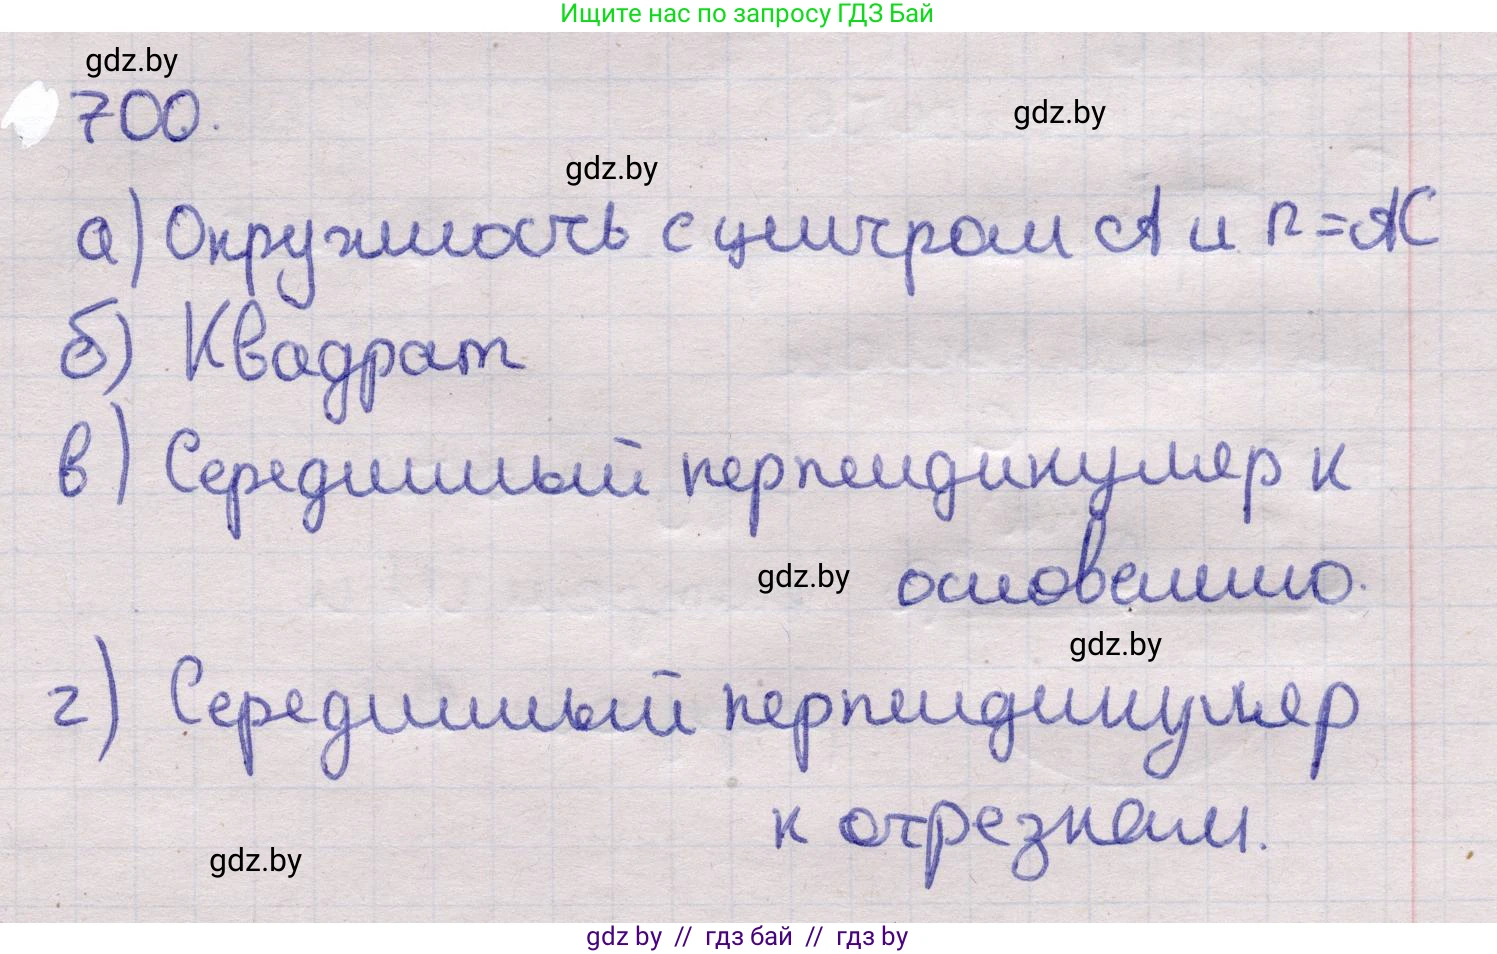 Ищите нас по запросу ГДЗ Бай
gdz.by
700.
gdz.by
gdz.by
а) Окружность с центром А и r=AC
б) Квадрат
в) Серединный перпендикуляр к
основанию.
gdz.by
gdz.by
г) Серединный перпендикуляр
к отрезкам.
gdz.by
gdz by // гдз бай // гдз by